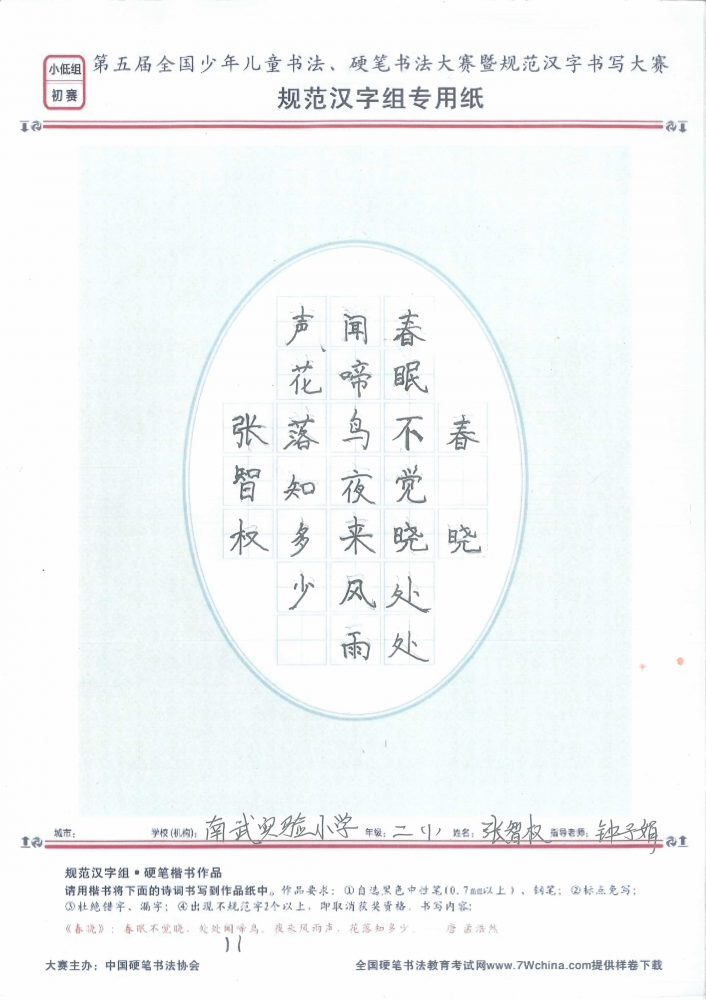 小低组
初赛
第五届全国少年儿童书法、硬笔书法大赛暨规范汉字书写大赛
规范汉字组专用纸
春晓
春眠不觉晓处处
闻啼鸟夜来风雨
声花落知多少
张智权
城市： 学校(机构)：南武实验小学 年级：二小 姓名：张智权 指导老师：钟子娟
规范汉字组·硬笔楷书作品
请用楷书将下面的诗词书写到作品纸中。作品要求：①自选黑色中性笔(0.7mm以上)、钢笔；②标点免写；
③杜绝错字、漏字；④出现不规范字2个以上，即取消获奖资格。书写内容：
《春晓》：春眠不觉晓，处处闻啼鸟。夜来风雨声，花落知多少。 唐 孟浩然
11
大赛主办：中国硬笔书法协会 全国硬笔书法教育考试网www.7Wchina.com提供样卷下载